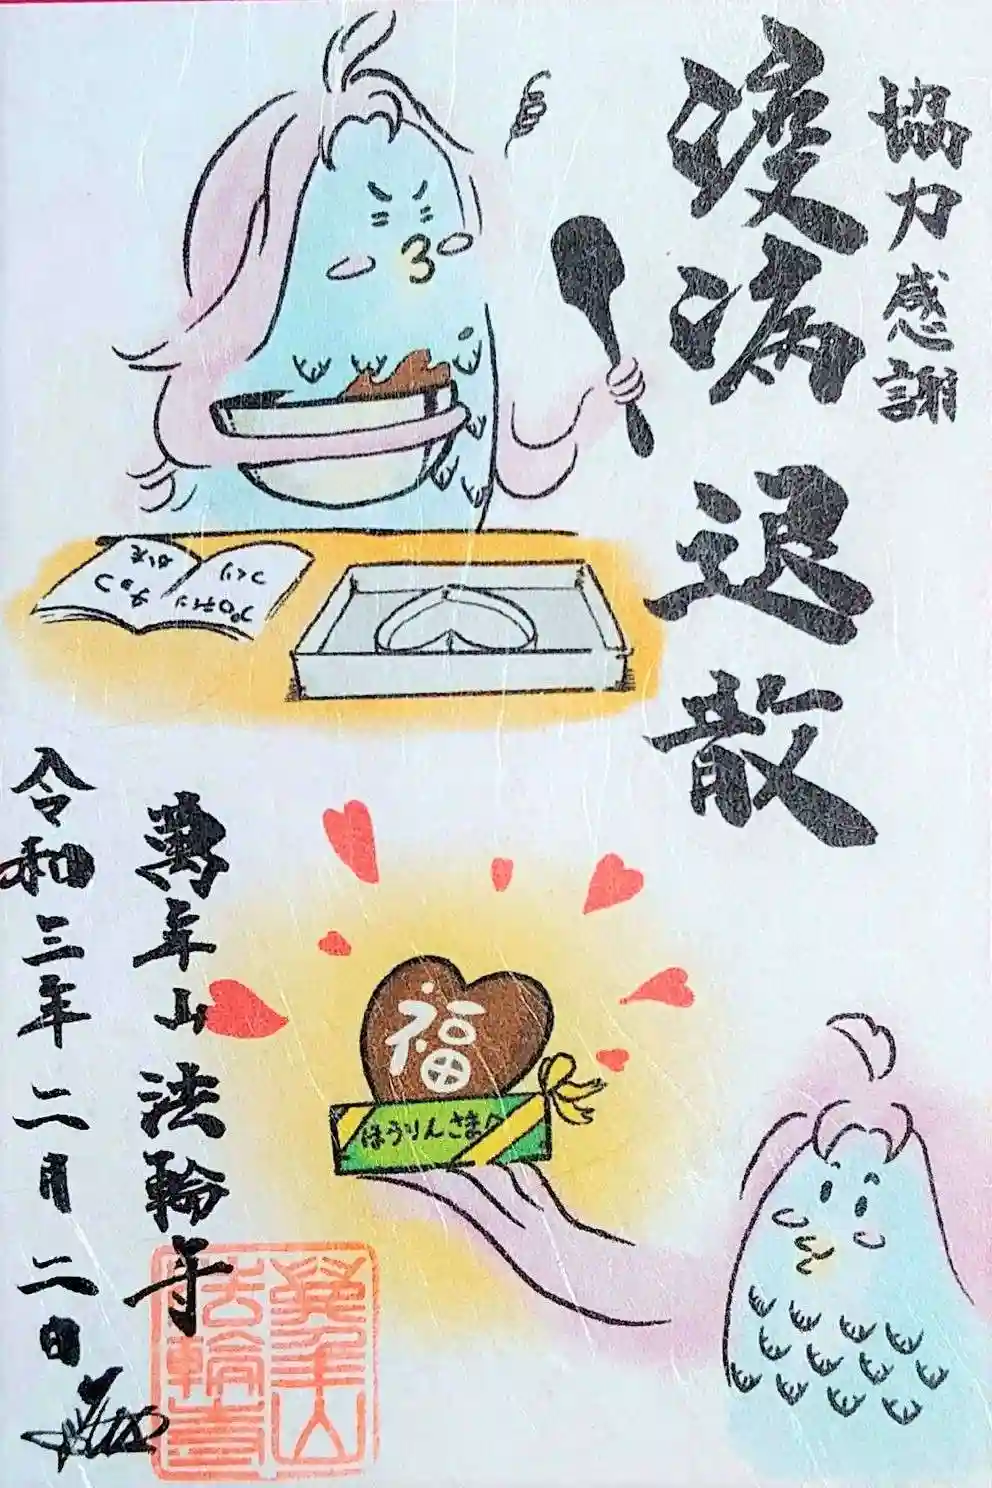 協力感謝
疫病 退散
プロティンチョコ
つくりかた
福
ほうりんさまへ
萬年山 法輪寺
令和三年 二月 二日
萬年山
法輪寺